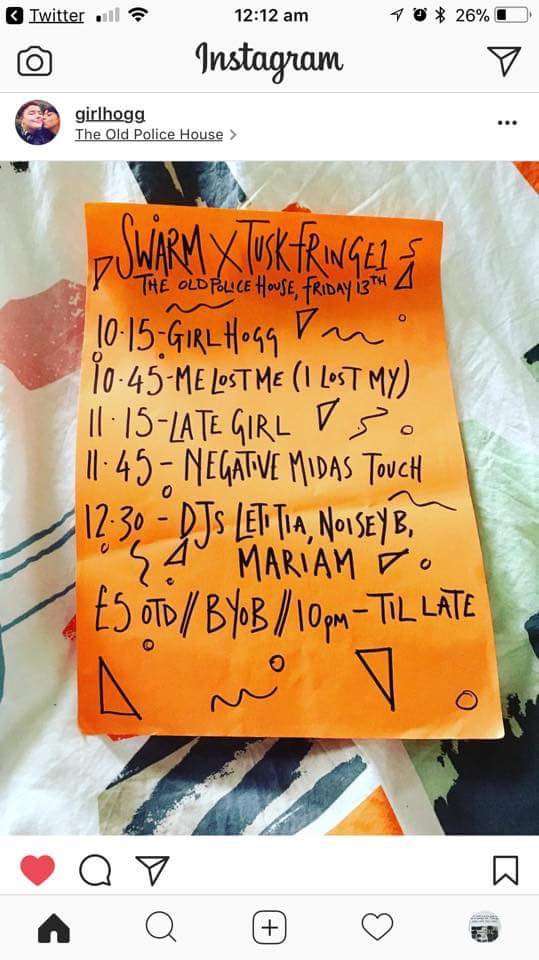 Twitter
12:12 am
26%
Instagram
girlhogg
The Old Police House >
SWARM X TUSK FRINGE1
THE OLD POLICE HOUSE, FRIDAY 13TH
10·15-GIRL HOGG
10·45-ME LOST ME (I LOST MY)
11·15-LATE GIRL
11·45- NEGATIVE MIDAS TOUCH
12·30 - DJS LETITIA, NOISEY B,
MARIAM
£5 OTD // BYOB // 10pm-TIL LATE